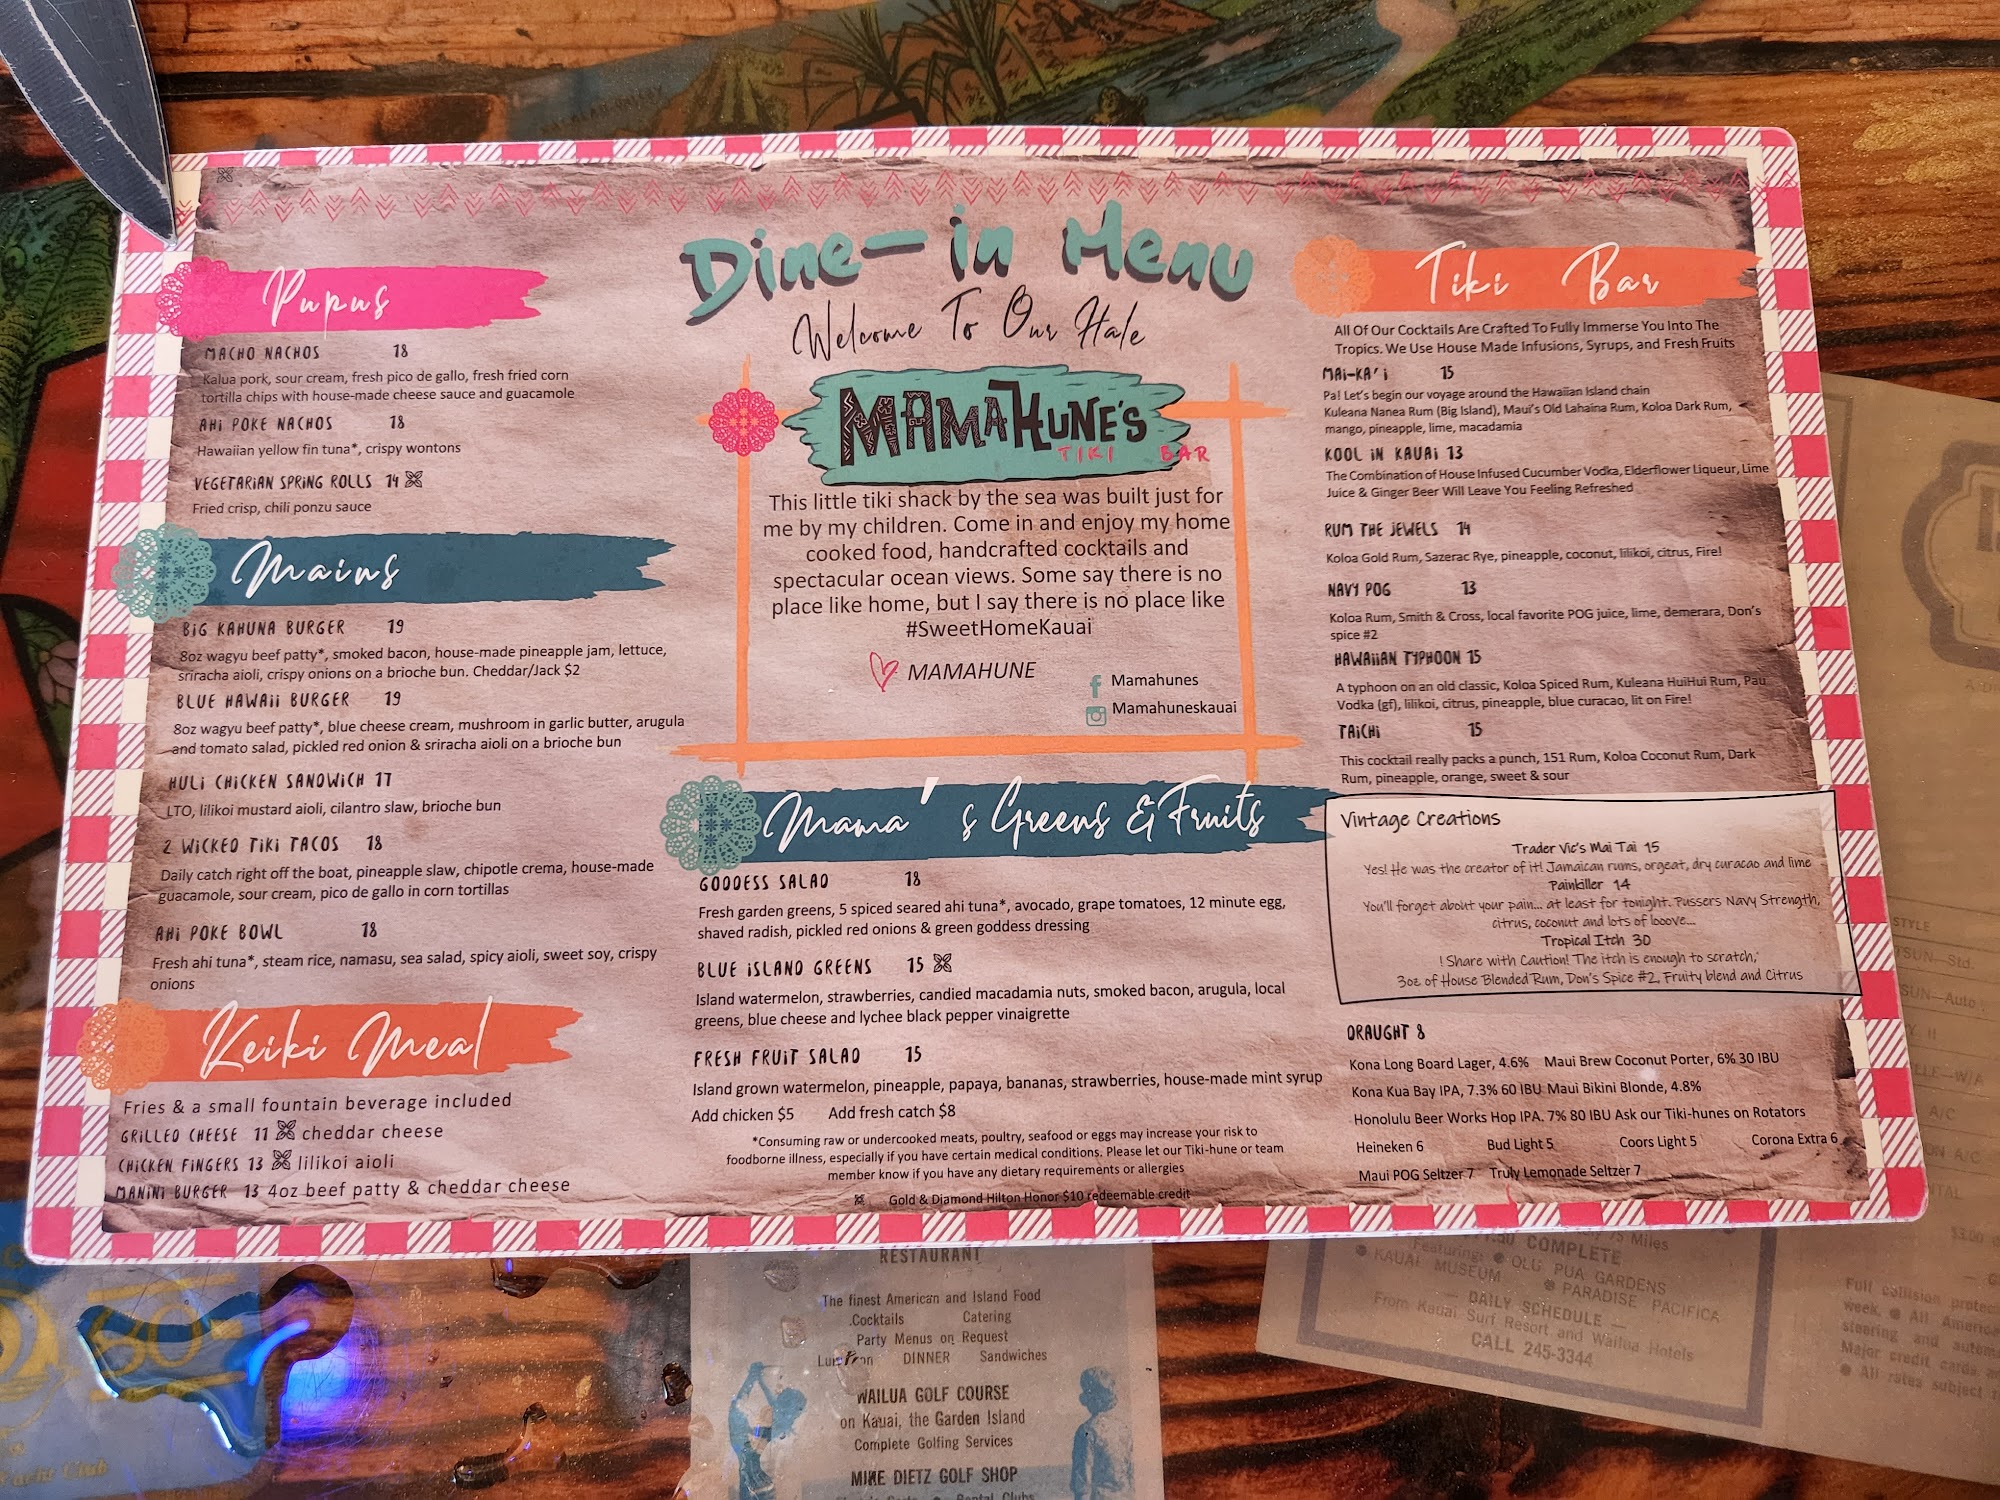 Dine-in Menu
Welcome To Our Hale
MAMAHUNE'S
TIKI BAR
This little tiki shack by the sea was built just for
me by my children. Come in and enjoy my home
cooked food, handcrafted cocktails and
spectacular ocean views. Some say there is no
place like home, but I say there is no place like
#SweetHomeKauai
MAMAHUNE
Mamahunes
Mamahuneskauai
Pupus
MACHO NACHOS 18
Kalua pork, sour cream, fresh pico de gallo, fresh fried corn
tortilla chips with house-made cheese sauce and guacamole
AHI POKE NACHOS 18
Hawaiian yellow fin tuna*, crispy wontons
VEGETARIAN SPRING ROLLS 14
Fried crisp, chili ponzu sauce
Mains
BIG KAHUNA BURGER 19
8oz wagyu beef patty*, smoked bacon, house-made pineapple jam, lettuce,
sriracha aioli, crispy onions on a brioche bun. Cheddar/Jack $2
BLUE HAWAII BURGER 19
8oz wagyu beef patty*, blue cheese cream, mushroom in garlic butter, arugula
and tomato salad, pickled red onion & sriracha aioli on a brioche bun
HULI CHICKEN SANDWICH 17
LTO, lilikoi mustard aioli, cilantro slaw, brioche bun
2 WICKED TIKI TACOS 18
Daily catch right off the boat, pineapple slaw, chipotle crema, house-made
guacamole, sour cream, pico de gallo in corn tortillas
AHI POKE BOWL 18
Fresh ahi tuna*, steam rice, namasu, sea salad, spicy aioli, sweet soy, crispy
onions
Keiki Meal
Fries & a small fountain beverage included
GRILLED CHEESE 11 cheddar cheese
CHICKEN FINGERS 13 lilikoi aioli
MANINI BURGER 13 4oz beef patty & cheddar cheese
Mama's Greens & Fruits
GODDESS SALAD 18
Fresh garden greens, 5 spiced seared ahi tuna*, avocado, grape tomatoes, 12 minute egg,
shaved radish, pickled red onions & green goddess dressing
BLUE ISLAND GREENS 15
Island watermelon, strawberries, candied macadamia nuts, smoked bacon, arugula, local
greens, blue cheese and lychee black pepper vinaigrette
FRESH FRUIT SALAD 15
Island grown watermelon, pineapple, papaya, bananas, strawberries, house-made mint syrup
Add chicken $5 Add fresh catch $8
*Consuming raw or undercooked meats, poultry, seafood or eggs may increase your risk to
foodborne illness, especially if you have certain medical conditions. Please let our Tiki-hune or team
member know if you have any dietary requirements or allergies
Gold & Diamond Hilton Honor $10 redeemable credit
Tiki Bar
All Of Our Cocktails Are Crafted To Fully Immerse You Into The
Tropics. We Use House Made Infusions, Syrups, and Fresh Fruits
MAI-KA'I 15
Pa! Let's begin our voyage around the Hawaiian Island chain
Kuleana Nanea Rum (Big Island), Maui's Old Lahaina Rum, Koloa Dark Rum,
mango, pineapple, lime, macadamia
KOOL IN KAUAI 13
The Combination of House Infused Cucumber Vodka, Elderflower Liqueur, Lime
Juice & Ginger Beer Will Leave You Feeling Refreshed
RUM THE JEWELS 14
Koloa Gold Rum, Sazerac Rye, pineapple, coconut, lilikoi, citrus, Fire!
NAVY POG 13
Koloa Rum, Smith & Cross, local favorite POG juice, lime, demerara, Don's
spice #2
HAWAIIAN TYPHOON 15
A typhoon on an old classic, Koloa Spiced Rum, Kuleana HuiHui Rum, Pau
Vodka (gf), lilikoi, citrus, pineapple, blue curacao, lit on Fire!
TAICHI 15
This cocktail really packs a punch, 151 Rum, Koloa Coconut Rum, Dark
Rum, pineapple, orange, sweet & sour
Vintage Creations
Trader Vic's Mai Tai 15
Yes! He was the creator of it! Jamaican rums, orgeat, dry curacao and lime
Painkiller 14
You'll forget about your pain... at least for tonight. Pussers Navy Strength,
citrus, coconut and lots of looove...
Tropical Itch 30
! Share with Caution! The itch is enough to scratch,'
3oz of House Blended Rum, Don's Spice #2, Fruity blend and Citrus
DRAUGHT 8
Kona Long Board Lager, 4.6% Maui Brew Coconut Porter, 6% 30 IBU
Kona Kua Bay IPA, 7.3% 60 IBU Maui Bikini Blonde, 4.8%
Honolulu Beer Works Hop IPA. 7% 80 IBU Ask our Tiki-hunes on Rotators
Heineken 6 Bud Light 5 Coors Light 5 Corona Extra 6
Maui POG Seltzer 7 Truly Lemonade Seltzer 7
RESTAURANT
The finest American and Island Food
Cocktails Catering
Party Menus on Request
DINNER Sandwiches
WAILUA GOLF COURSE
on Kauai, the Garden Island
Complete Golfing Services
MIKE DIETZ GOLF SHOP
Rental Clubs
75 Miles
COMPLETE
Featuring: OLU PUA GARDENS
KAUAI MUSEUM PARADISE PACIFICA
— DAILY SCHEDULE —
From Kauai Surf Resort and Wailua Hotels
CALL 245-3344
STYLE
SUN—Std.
SUN—Auto
II
W/A
A/C
A/C
$3.00
Full collision
week. All
steering and
Major credit cards
All rates subject
Yacht Club